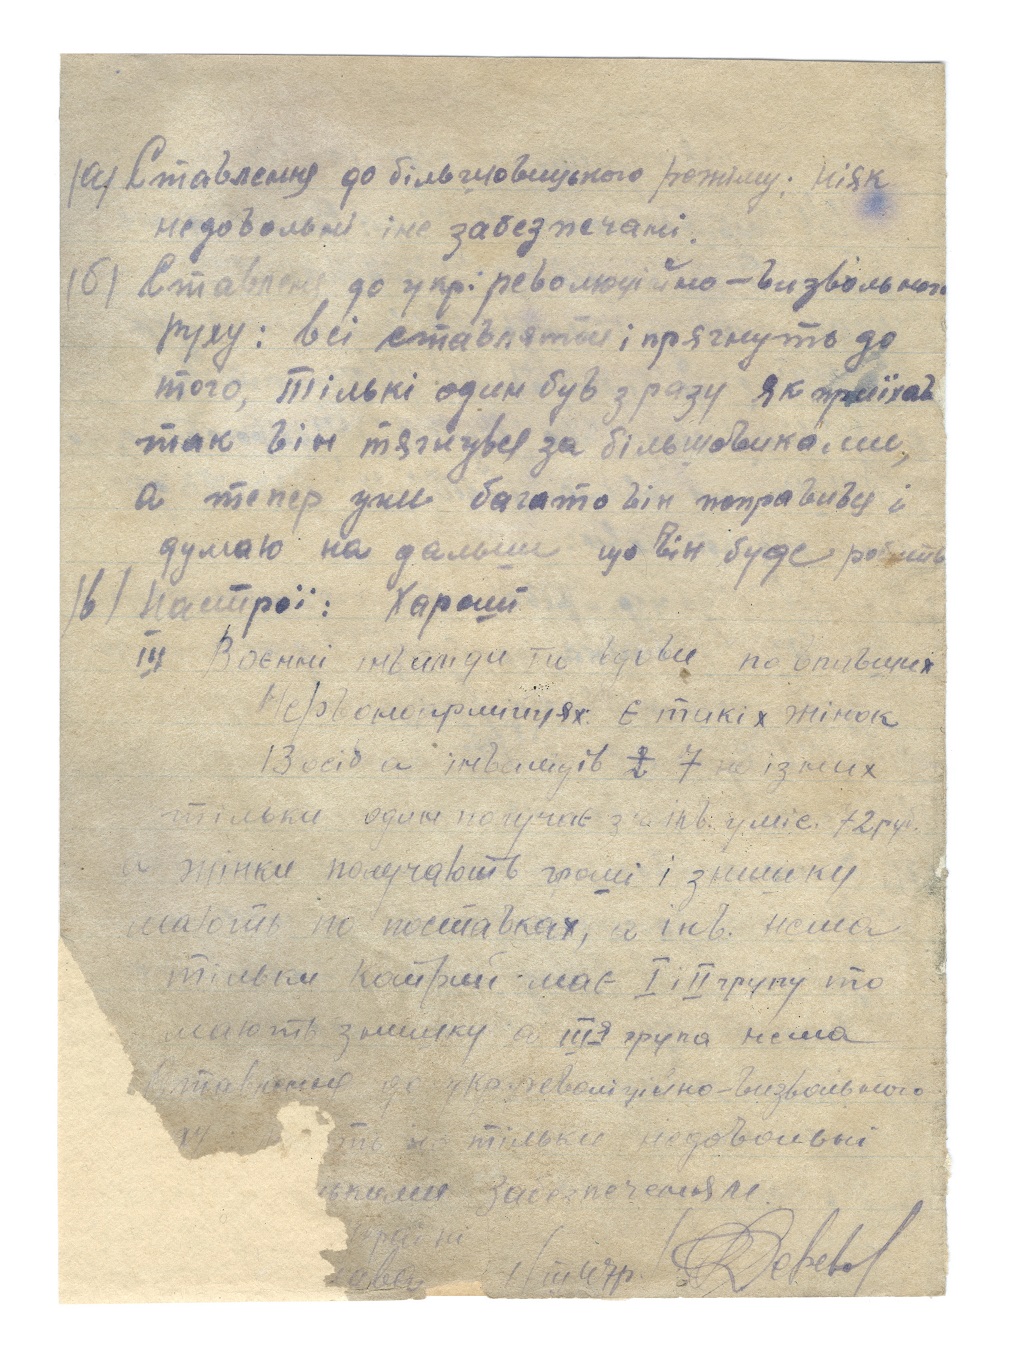 /а/ Ставлення до більшовицького режіму: ніяк
недовольні і не забезпечані.
/б/ Ставленя до укр. революційно-визвольного
руху: всі ставляться і прягнуть до
того, тількі один був зразу як приїхав
так він тягнувся за більшовиками,
а тепер уже багато він поправився і
думаю на дальше що він буде робить
/в/ Настрої: Хароші
III Воєнні інваліди та вдови по
Червоноармійцях. Є такіх жінок
13 осіб а інвалідів 7 но ізних
тільки один получає за інв. у міс. 72 руб.
а жінки получають гроші і знишку
мають по поставках, а інв. нема
тільки котрий має I і II групу то
мають знишку а III я група нема
Ставленя до укр. революційно-визвольного
тільки недовольні
забезпеченням.